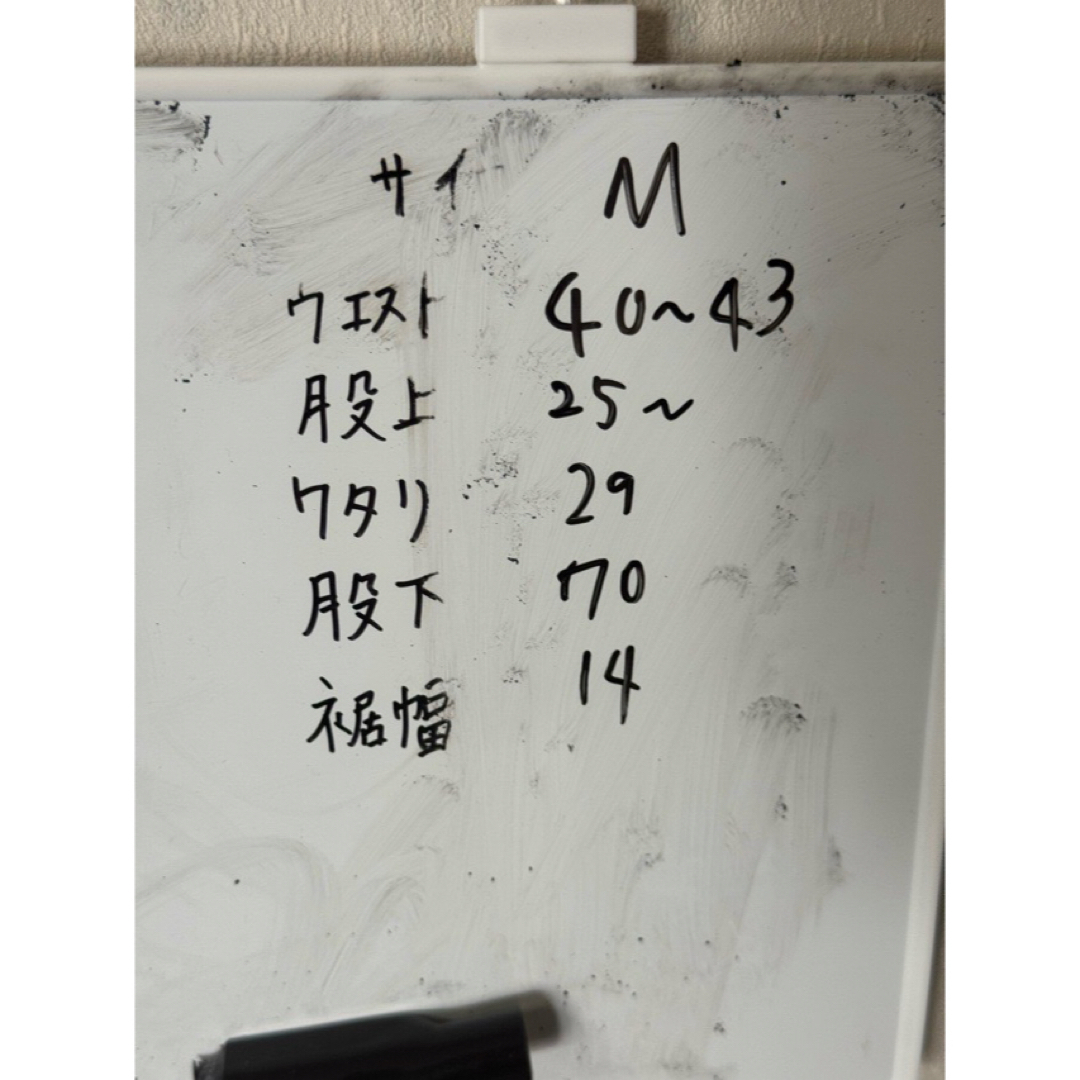 サイ M
ウエスト 40~43
股上 25~
ワタリ 29
股下 70
裾幅 14